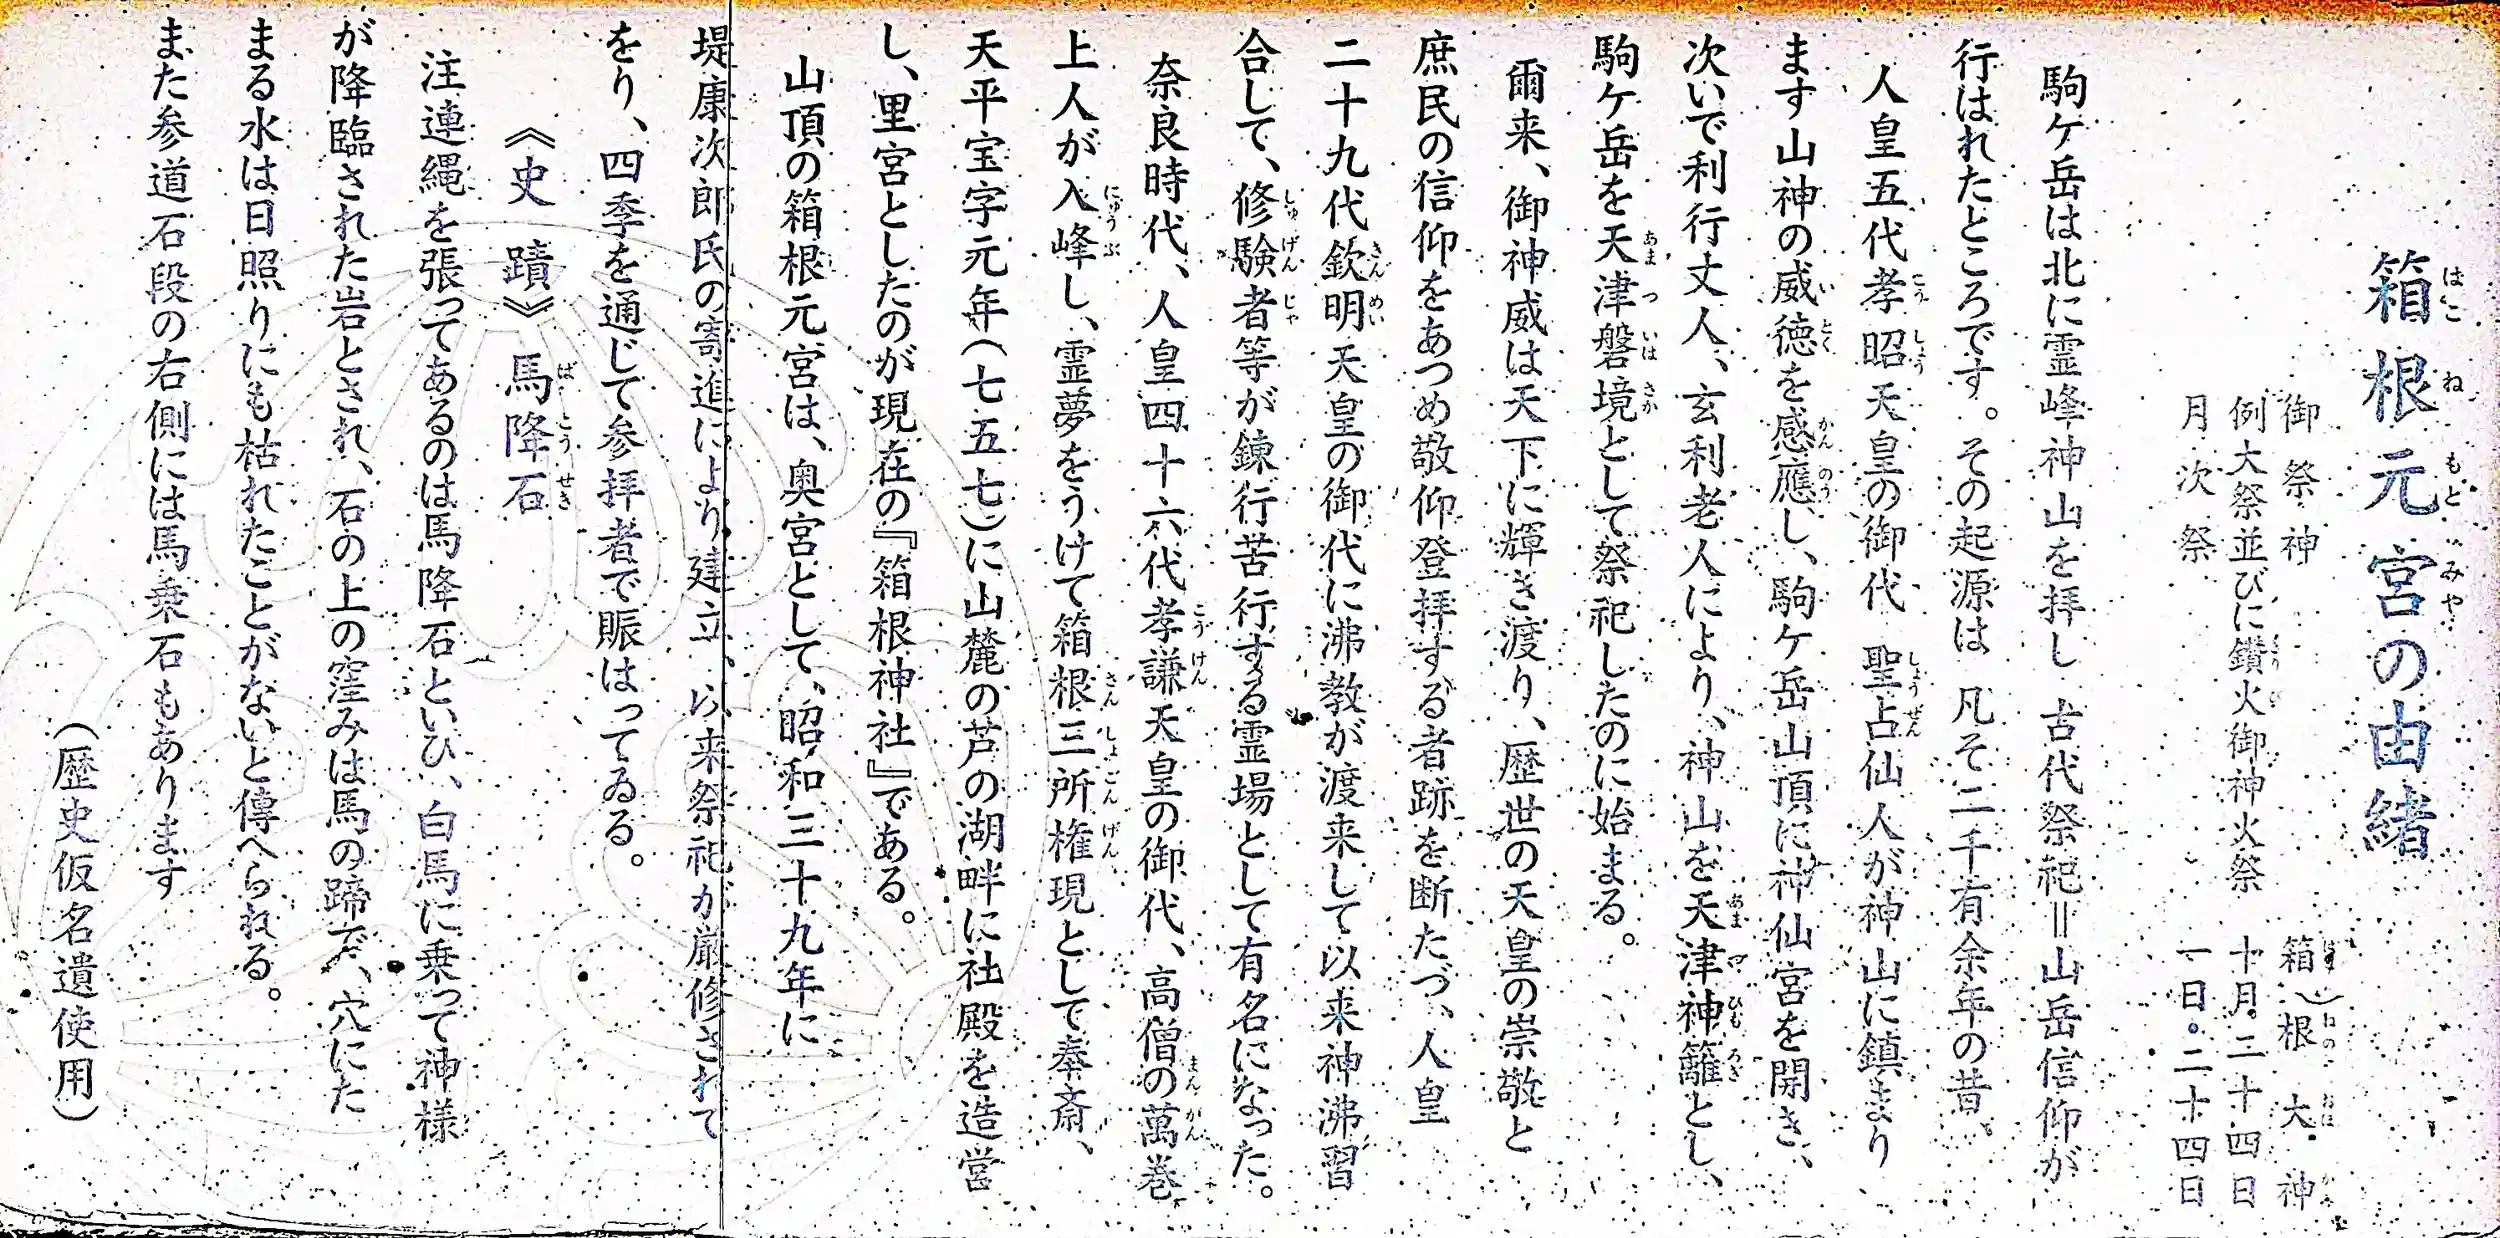 箱根元宮の由緒
御祭神 箱根大神
例大祭並びに鑽火御神火祭 十月二十四日
月次祭 一日・二十四日
駒ケ岳は北に霊峰神山を拝し 古代祭祀=山岳信仰が
行はれたところです。その起源は 凡そ二千有余年の昔、
人皇五代孝昭天皇の御代 聖占仙人が神山に鎮まり
ます山神の威徳を感應し、駒ケ岳山頂に神仙宮を開き、
次いで利行丈人、玄利老人により、神山を天津神籬とし、
駒ケ岳を天津磐境として祭祀したのに始まる。
爾来、御神威は天下に輝き渡り、歴世の天皇の崇敬と
庶民の信仰をあつめ敬仰登拝する者跡を断たづ、人皇
二十九代欽明天皇の御代に沸教が渡来して以来神沸習
合して、修験者等が錬行苦行する霊場として有名になった。
奈良時代、人皇四十六代孝謙天皇の御代、高僧の萬巻
上人が入峰し、霊夢をうけて箱根三所権現として奉斎、
天平宝字元年(七五七)に山麓の芦の湖畔に社殿を造営
し、里宮としたのが現在の『箱根神社』である。
山頂の箱根元宮は、奥宮として、昭和三十九年に
堤康次郎氏の寄進により建立、以来祭祀が厳修されて
をり、四季を通じて参拝者で賑はってゐる。
《史蹟》馬降石
注連縄を張ってあるのは馬降石といひ、白馬に乗って神様
が降臨された岩とされ、石の上の窪みは馬の蹄で、穴にた
まる水は日照りにも枯れたことがないと傳へられる。
また参道石段の右側には馬乗石もあります
(歴史仮名遺使用)